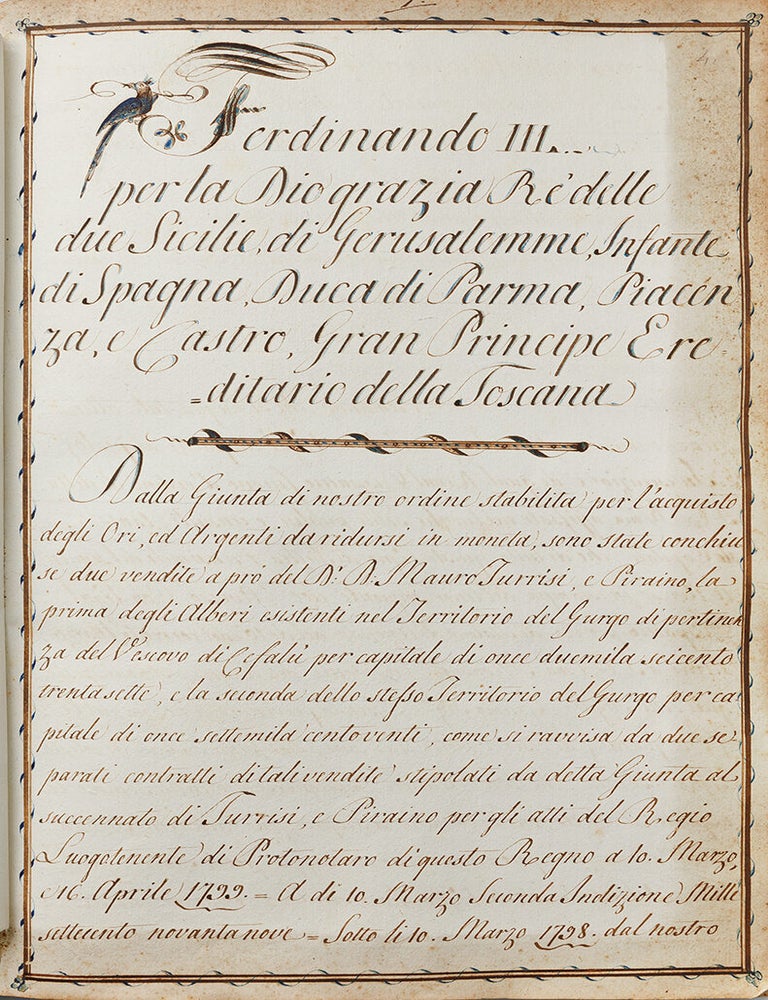 Ferdinando III...
per la Dio grazia Rè delle
due Sicilie, di Gerusalemme, Infante
di Spagna, Duca di Parma, Piacen
za, e Castro, Gran Principe Ere-
=ditario della Toscana
Dalla Giunta di nostro ordine stabilita per l'acquisto
degli Ori, ed Argenti da ridursi in moneta, sono state conchiu
se due vendite a pró del Dr. D. Mauro Turrisi, e Piraino, la
prima degli Alberi esistenti nel Territorio del Gurgo di pertinen
za del Vescovo di Cefalù per capitale di once duemila seicento
trentasette, e la seconda dello stesso Territorio del Gurgo per ca
pitale di once settemila cento venti, come si ravvisa da due se
parati contratti di tali vendite stipolati da detta Giunta al
succennato di Turrisi, e Piraino per gli atti del Regio
Luogotenente di Protonotaro di questo Regno a 10. Marzo,
e 16. Aprile 1799. = A di 10. Marzo Seconda Indizione Mille
settecento novantanove = Sotto li 10. Marzo 1798. dal nostro